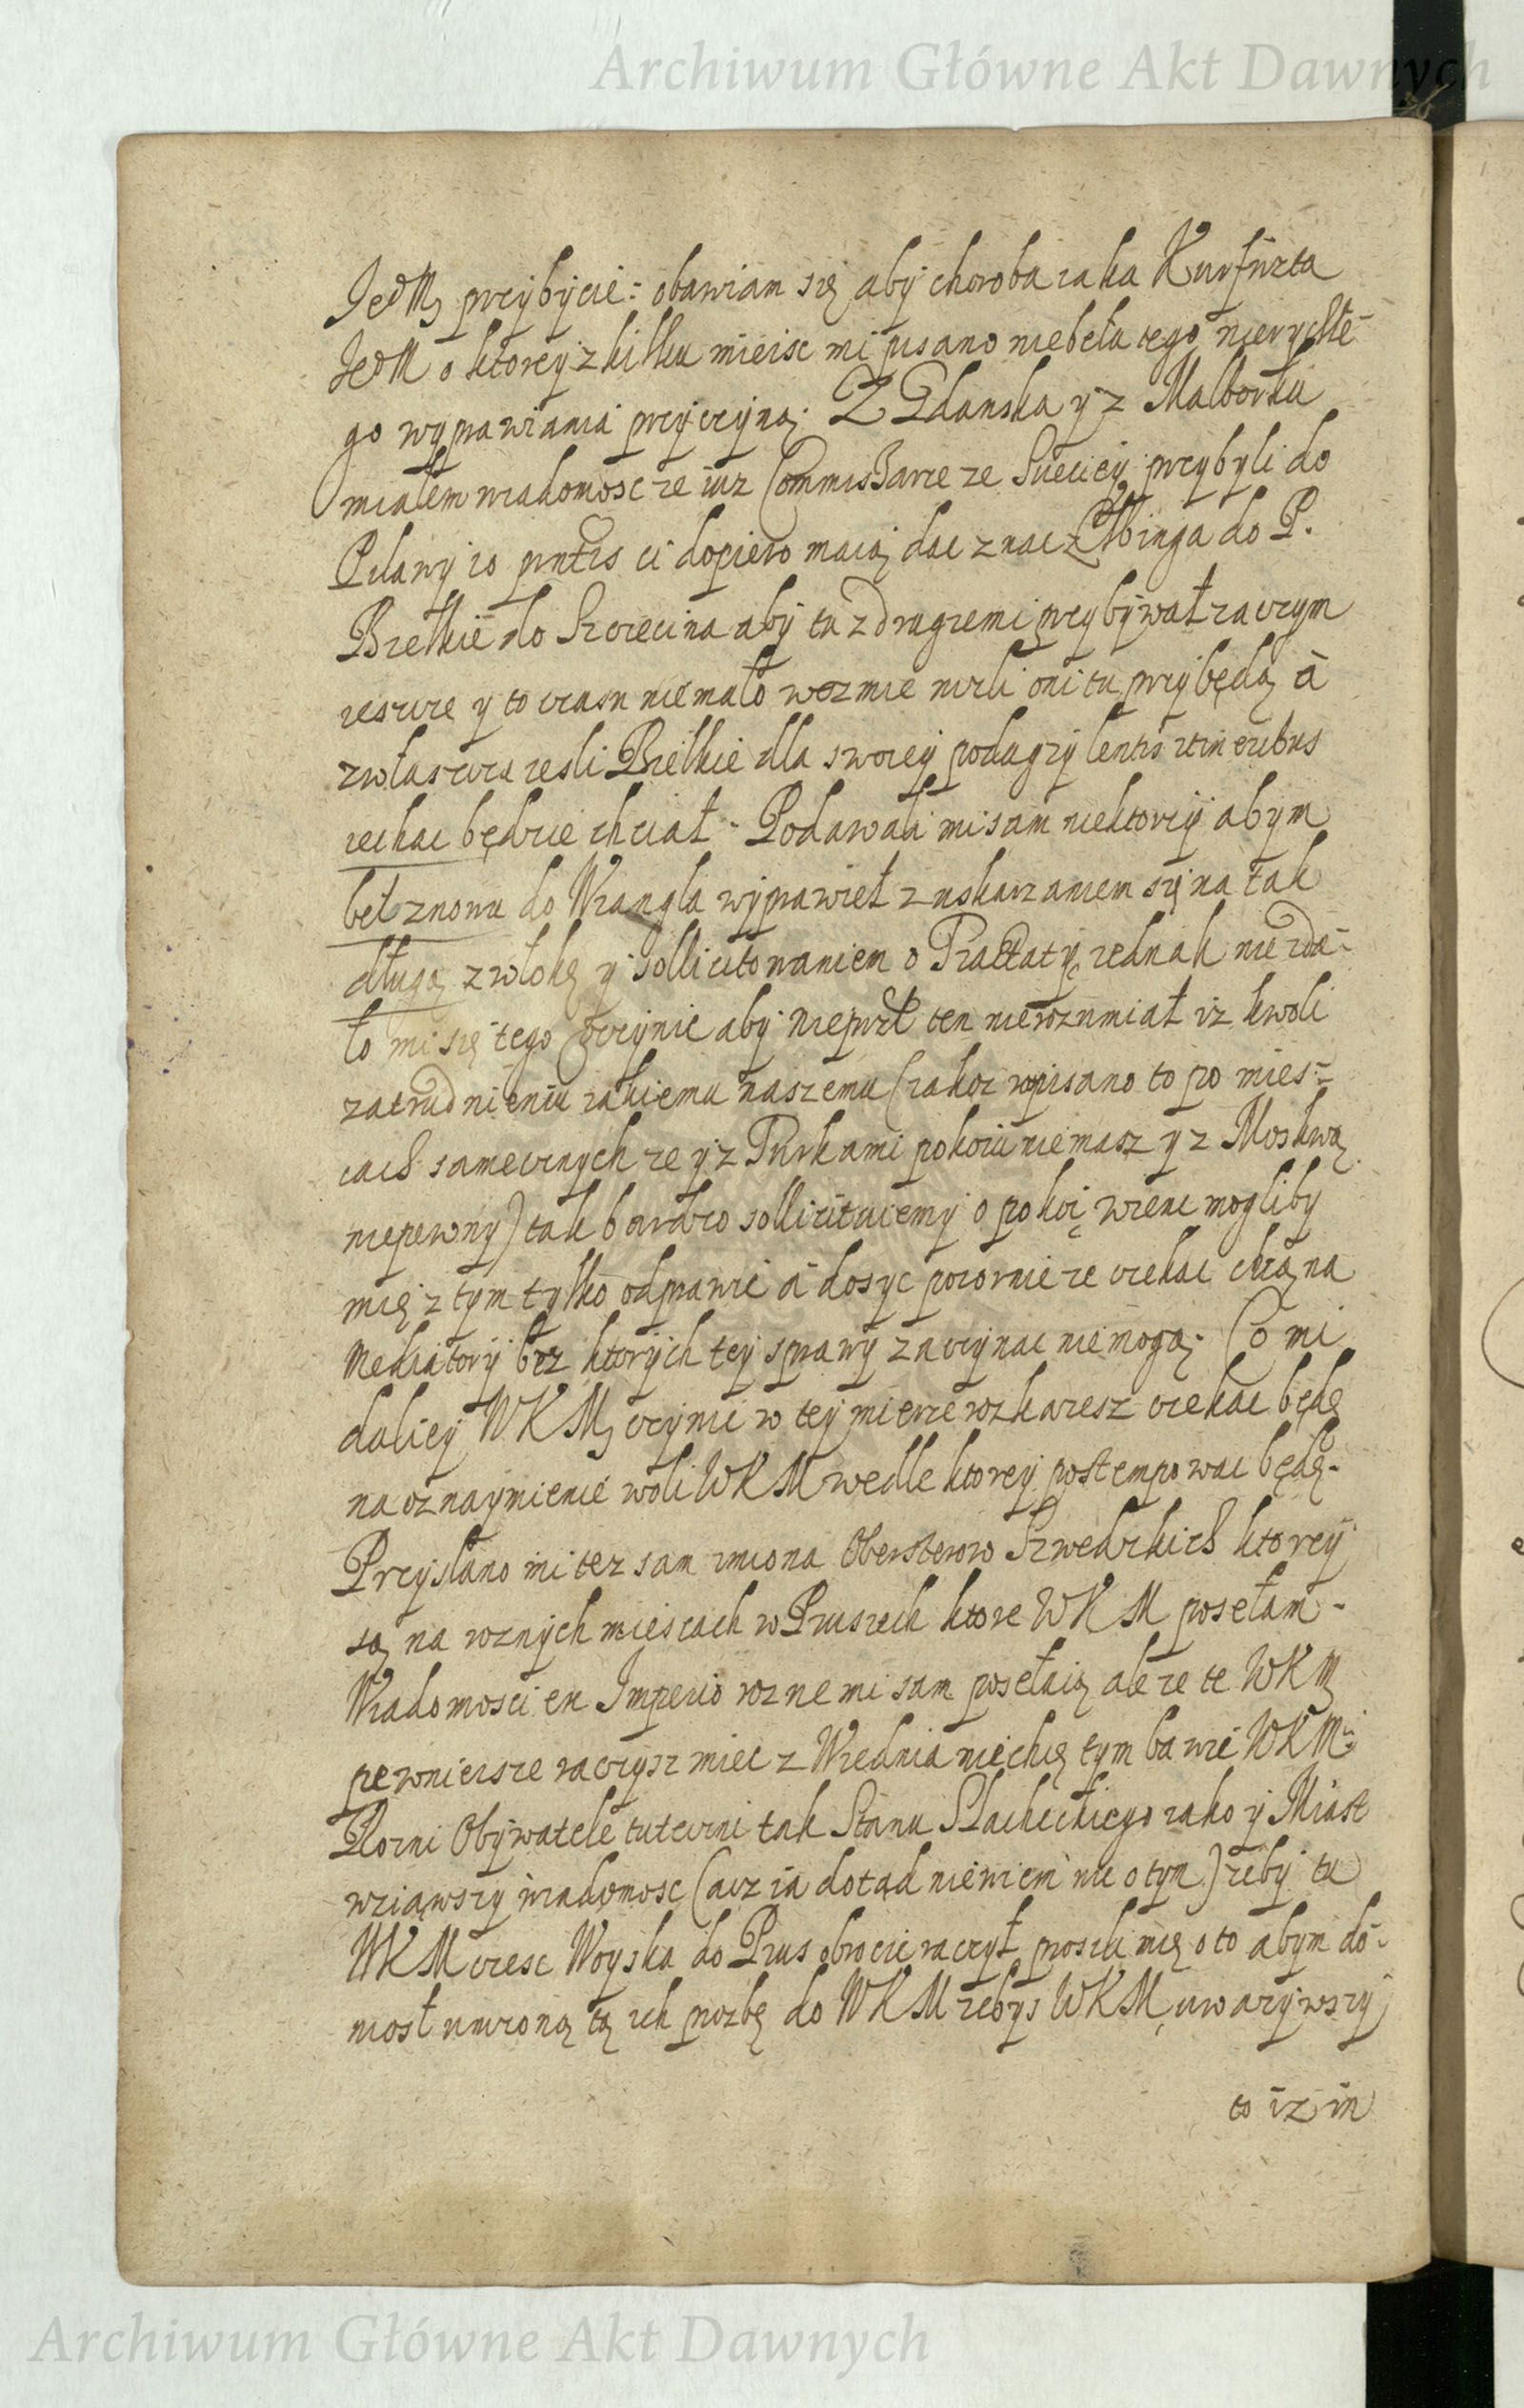 Archiwum Główne Akt Dawnych
JeoM przybycie: obawiam się aby choroba iaka Kurfirzta
JeoM o ktorey z kilku mieisc mi pisano niebeła tego nierychłe-
go wyprawiania przyczyną. Z Gdanska y z Malborku
miałem wiadomosc ze iuz Commissarze ze Sueciey przybyli do
Pilawy 10 pntis ci dopiero maią dac znac z Elbinga do P.
Bielkie do Szczecina aby tu z drugiemi przybywał zaczym
ieszcze y to czasu niemało wezmie nizli oni tu przybędą a
zwłaszcza iesli Bielkie dla swoiey podagry lentis itineribus
iechac będzie chciał. Podawali mi sam niektorzy abym
beł znowu do Wrangla wyprawieł z uskarzaniem się na tak
długą zwłokę y sollicitowaniem o Tractaty, iednak nie zda-
ło mi się tego uczynic aby nieprzl ten nierozumiał iz kwoli
zatrudnieniu iakiemu naszemu (iakoz wpisano to po mies-
cach samecznych ze y z Turkami pokoiu niemasz y z Moskwą
niepewny) tak bardzo sollicituiemy o pokoi, wienc mogliby
mię z tym tylko odprawic a dosyc pozornie ze czekac chcą na
Mediatory bez ktorych tey sprawy zaczynac niemogą. Co mi
daliey WKM czynic w tey mierze rozkazesz czekac będę
na oznaymienie woli WKM wedle ktorey postempowac będę.
Przysłano mi tez sam imiona Obersterow Szwedzkich ktorzy
są na roznych miescach w Prusiech ktore WKM posełam.
Wiadomosci ex Imperio rozne mi sam posełaią ale ze te WKM
pewnieisze raczysz miec z Wiednia niechcę tym bawic WKMci
Rozni Obywatele tuteczni tak Stanu Slacheckiego iako y Miast
wziąwszy wiadomosc (acz ia dotąd niewiem nic o tym) zeby tu
WKM czesc Woyska do Prus obrocic raczył proszą mię o to abym do-
niosł unizoną tę ich prozbę do WKM zebys WKM uwazywszy
to iz in
Archiwum Główne Akt Dawnych